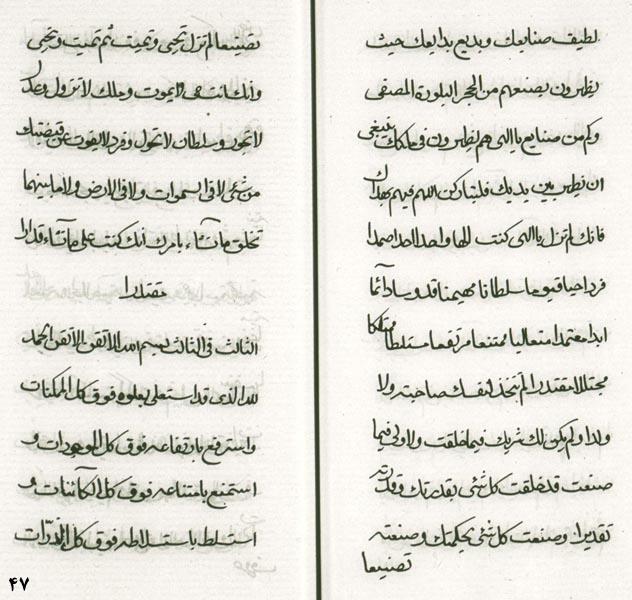 لطیف صنایعک و بدیع بدایعک حیث
یظهرون بصنعهم من الحجر البلورة المصفی
وکم من صنایع یا الهی هم یظهرون فی ملکک ینبغی
ان یظهر بین یدیک فلتبارکن اللهم فیهم بهذا
فانک لم تزل یا الهی کنت الها واحدا احدا صمدا
فردا حیا قیوما سلطانا مهیمنا قدوسا دائما
ابدا معتمدا متعالیا ممتنعا مرتفعا متسلطا ممتلکا
مجتللا مقتدرا لم تتخذ لنفسک صاحبة ولا
ولدا ولم یکن لک شریک فیما خلقت ولا ولی فیما
صنعت قد خلقت کل شئ بقدرتک وقدرته
تقدیرا وصنعت کل شئ بحکمتک وصنعته
تصنیعا
تصنیعا لم تزل تحیی وتمیت ثم تمیت وتحیی
وانک انت حی لا یموت وملک لا تزول وعدل
لا تجور وسلطان لا تحول وفرد لا یفوت عن قبضتک
من شئ لا فی السموات ولا فی الارض ولا ما بینهما
تخلق ما تشاء بامرک انک کنت علی ما تشاء قدارا
مقتدرا
الثالث فی الثالث بسم الله الاتقن الاتقن الحمد
لله الذی قد استعلی بعلوه فوق کل الممکنات
واسترفع بارتفاعه فوق کل الموجودات و
استمنع بامتناعه فوق کل الکائنات و
استسلط باستسلاطه فوق کل الذرات
۴۷